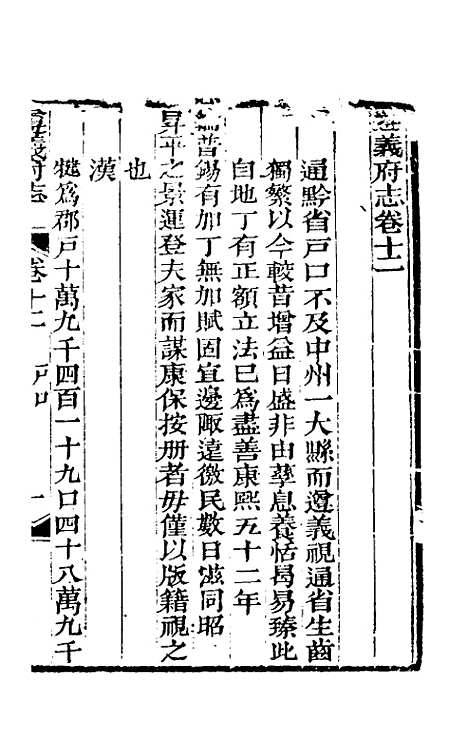 遵義府志卷十二
通黔省戸口不及中州一大縣而遵義視通省生齒
獨繁以今較昔增益日盛非由孳息養恬曷易臻此
自地丁有正額立法已為盡善康熙五十二年
普錫有加丁無加賦固宜邊陬遠徼民數日滋同昭
昇平之景運登夫家而謀康保按册者毋僅以版籍視之
也
漢
犍為郡戸十萬九千四百一十九口四十八萬九千
義府志
卷十二
戸口
一